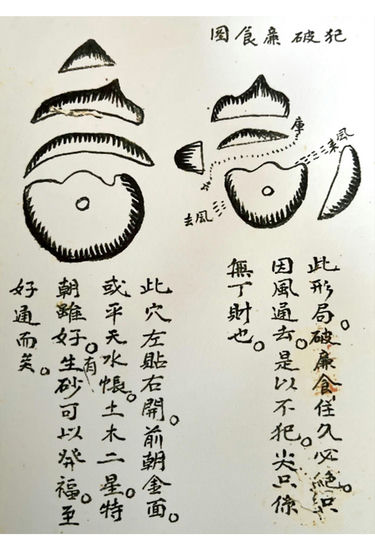 犯破廉食圖
庫
風来
風去
此形局。破廉食。住久必絕。只
因風過去。是以不犯。尖只係
無丁財也。
此穴左貼右開。前朝金面。
或平天水帳。土木二星特
朝雖好。有生砂可以發福。至
好通而矣。